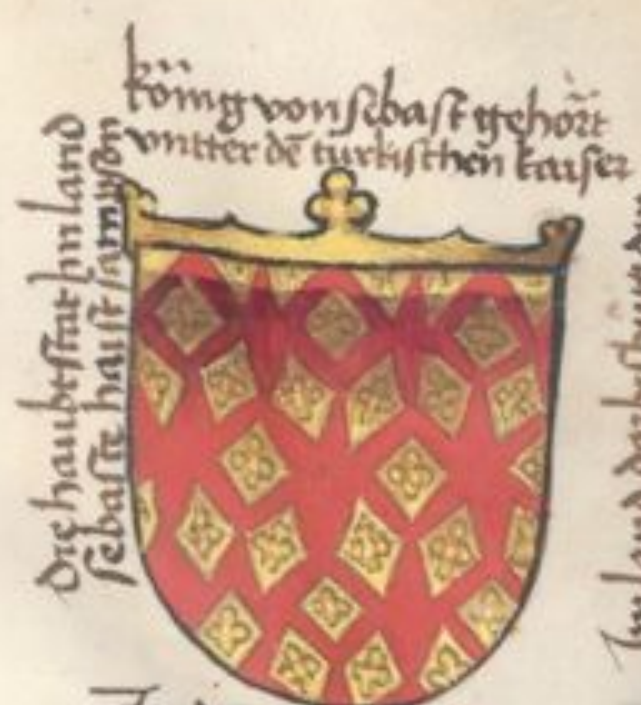 köing von sebast gehört
vntter dē türkischen kaiser
die haubtstat im land
sebaste haist samyson
Im land